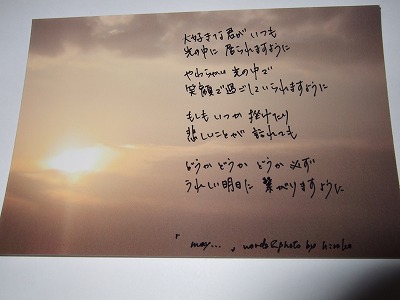 大好きな君が いつも
光の中に 居られますように
やわらかい 光の中で
笑顔で過ごしていられますように
もしも いつか 挫けたり
悲しいことが 訪れても
どうか どうか どうか 必ず
うれしい明日に 繋がりますように
「may...」 words&photo by hiroko